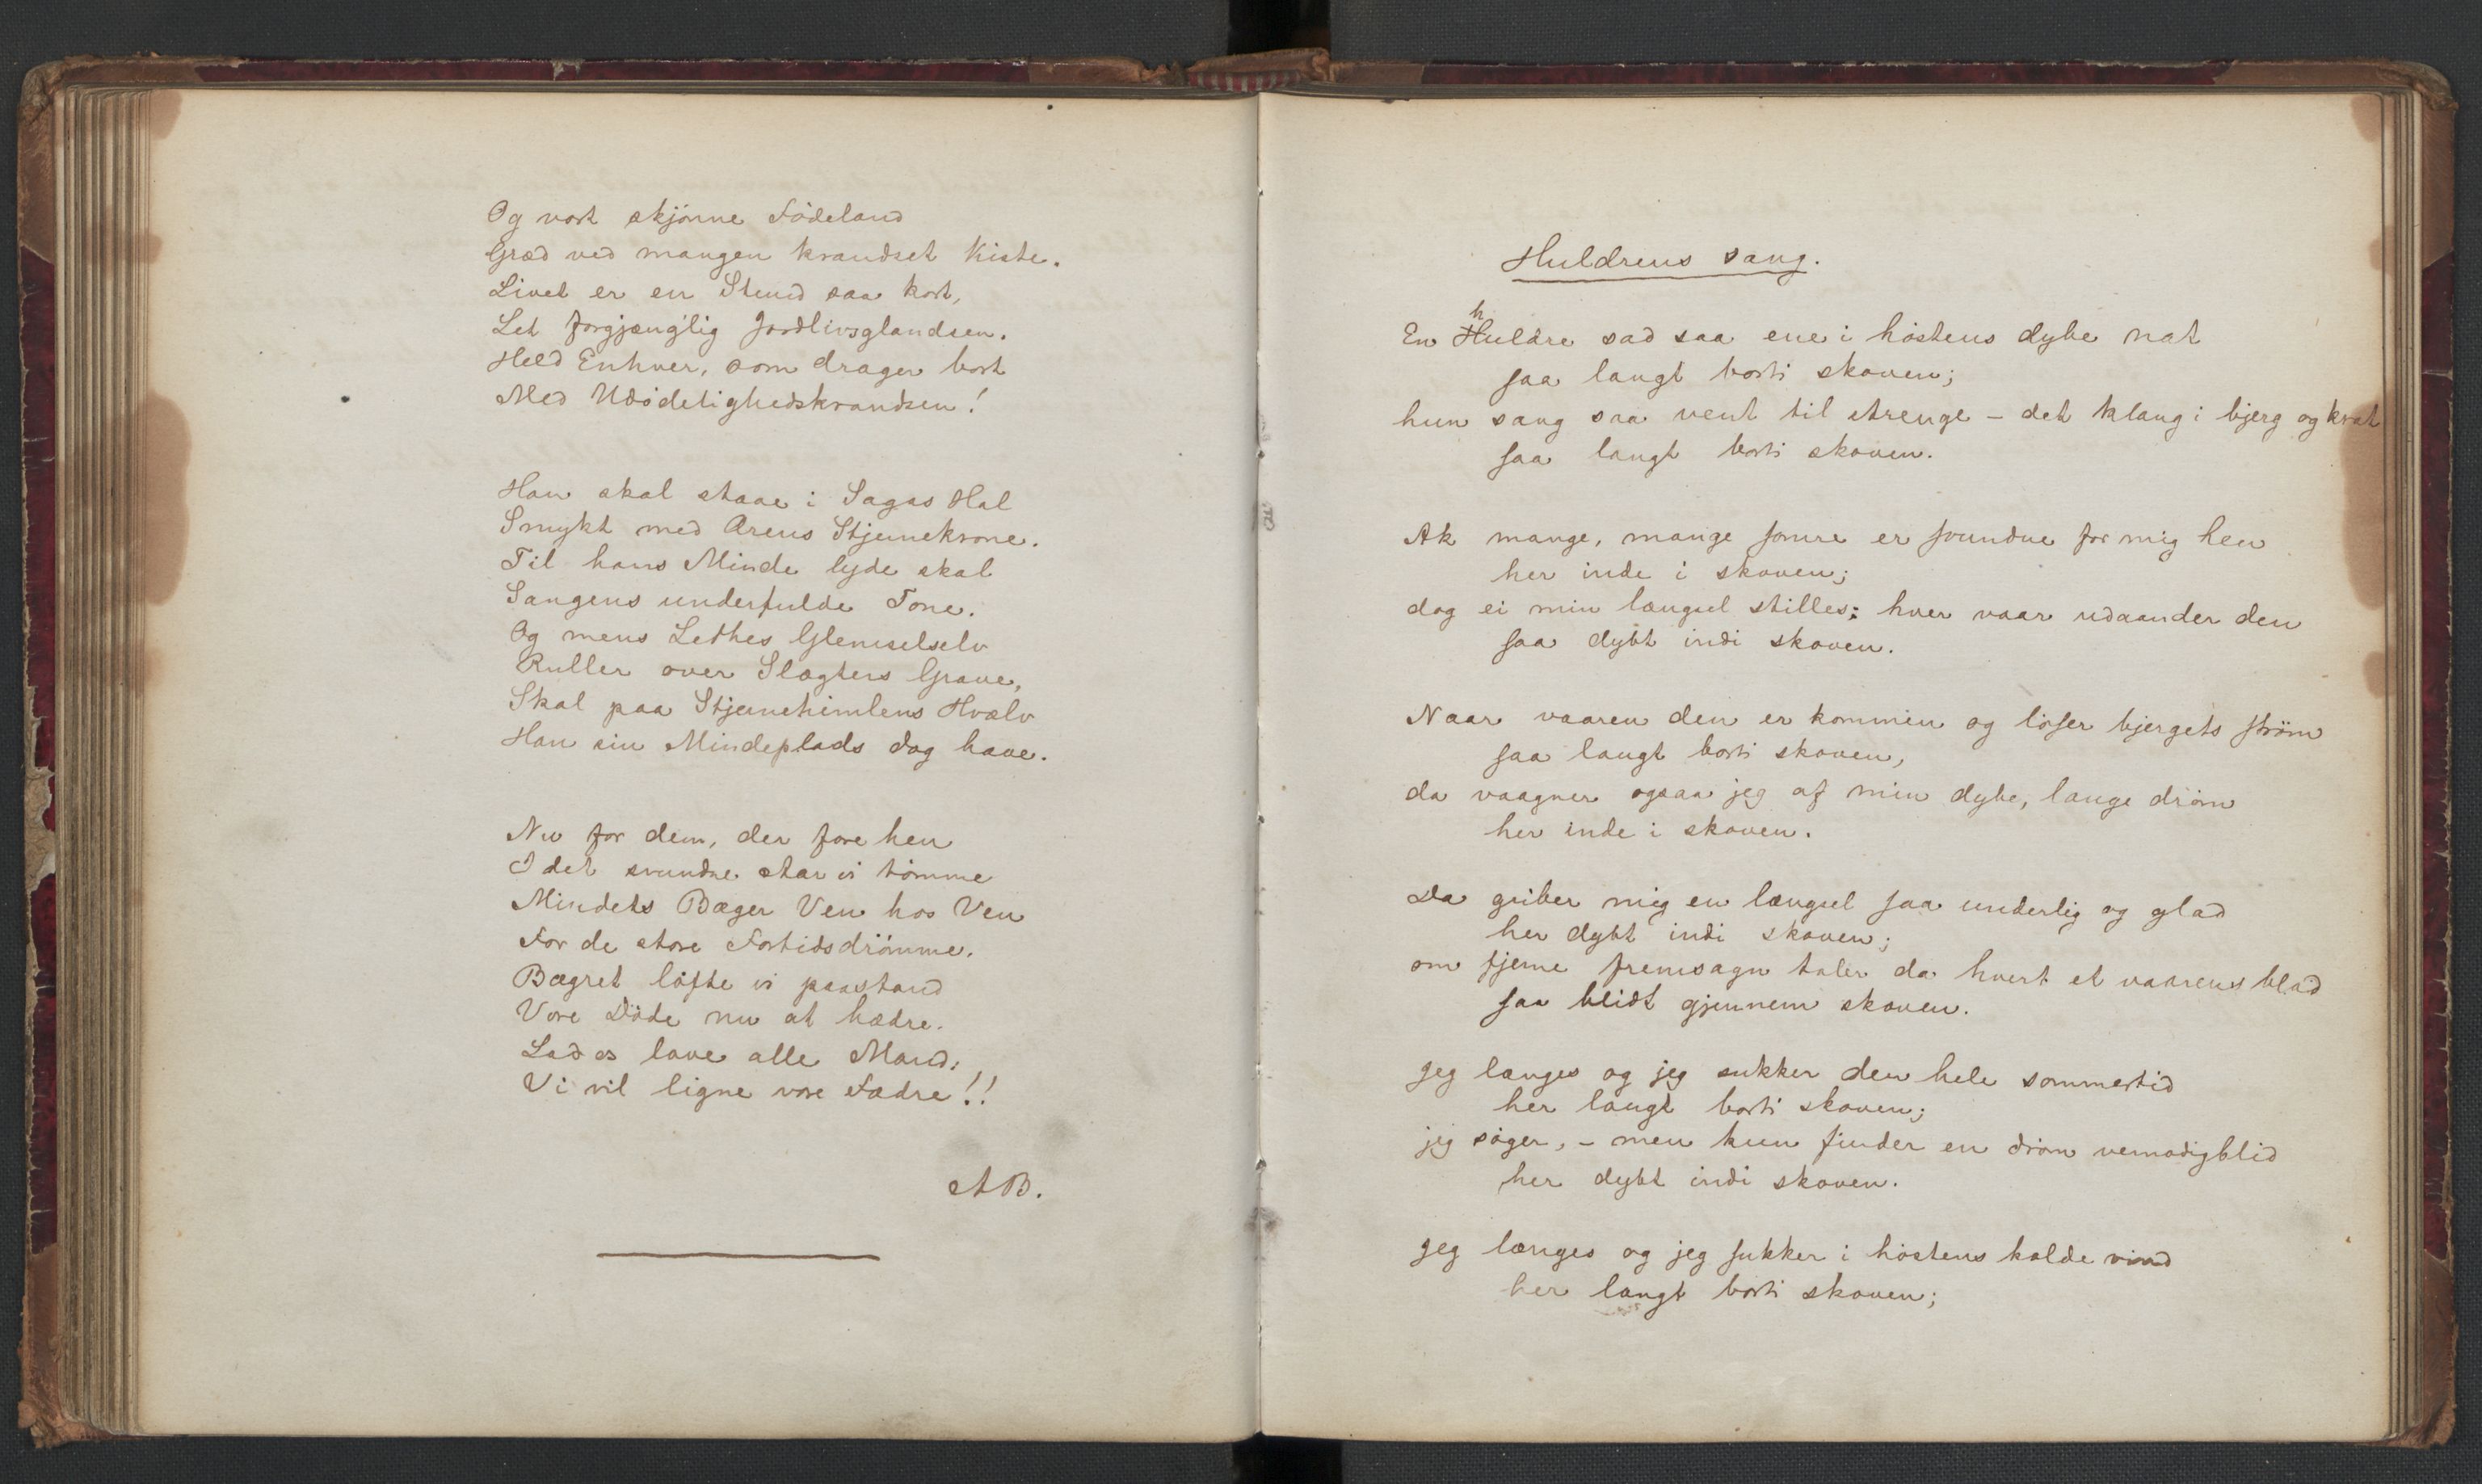 Og vort skjönne Födeland
Græd ved mangen krandset Kiste.
Livet er en Stund saa kort,
Let forgjængelig Jordlivsglandsen.
Held Enhver, som drager bort
Med Udödelighedskrandsen!
Han skal staae i Sagas Hal
Smykt med Ærens Stjernekrone.
Til hans Minde lyde skal
Sangens underfulde Tone.
Og mens Lethes Glemselselv
Ruller over Slægters Grave,
Skal paa Stjernehimlens Hvælv
Han sin Mindeplads dog have.
Nu for dem, der fore hen
I det svundne star vi tömme
Mindets Bæger Ven hos Ven
For de store Fortidsdrömme.
Bægret löfte vi paastand
Vore Döde nu at hædre.
Lad os love alle Mand:
Vi vil ligne vore Fædre!!
AB.
Huldrens sang.
h
En Huldre sad saa ene i höstens dybe nat
saa langt borti skoven;
hun sang saa vent til strenge – det klang i bjerg og krat
saa langt borti skoven.
Ak mange, mange somre er svundne for mig hen
her inde i skoven;
dog ei min længsel stilles; hver vaar udaander den
saa dybt indi skoven.
Naar vaaren den er kommen og löser bjergets ström
saa langt borti skoven,
da vaagner ogsaa jeg af min dybe, lange dröm
her inde i skoven.
Da griber mig en længsel saa underlig og glad
her dybt indi skoven;
om fjerne fremsagn taler da hvert et vaarens blad
saa blidt gjennem skoven.
Jeg længes og jeg sukker den hele sommertid
her langt borti skoven;
jeg söger, – men kun finder en dröm vemodigblid
her dybt indi skoven.
Jeg længes og jeg sukker i höstens kolde vind
her langt borti skoven;